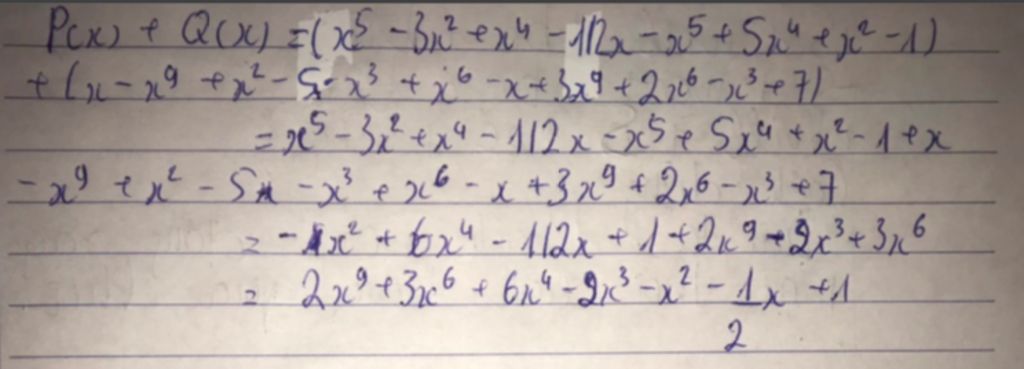 P(x) + Q(x) = (x⁵ - 3x² + x⁴ - 1/2x - x⁵ + 5x⁴ + x² - 1)
+ (x - x⁹ + x² - 5 - x³ + x⁶ - x + 3x⁹ + 2x⁶ - x³ + 7)
= x⁵ - 3x² + x⁴ - 1/2x - x⁵ + 5x⁴ + x² - 1 + x
- x⁹ + x² - 5 - x³ + x⁶ - x + 3x⁹ + 2x⁶ - x³ + 7
= -1x² + 6x⁴ - 1/2x + 1 + 2x⁹ - 2x³ + 3x⁶
= 2x⁹ + 3x⁶ + 6x⁴ - 2x³ - x² - 1/2 x + 1